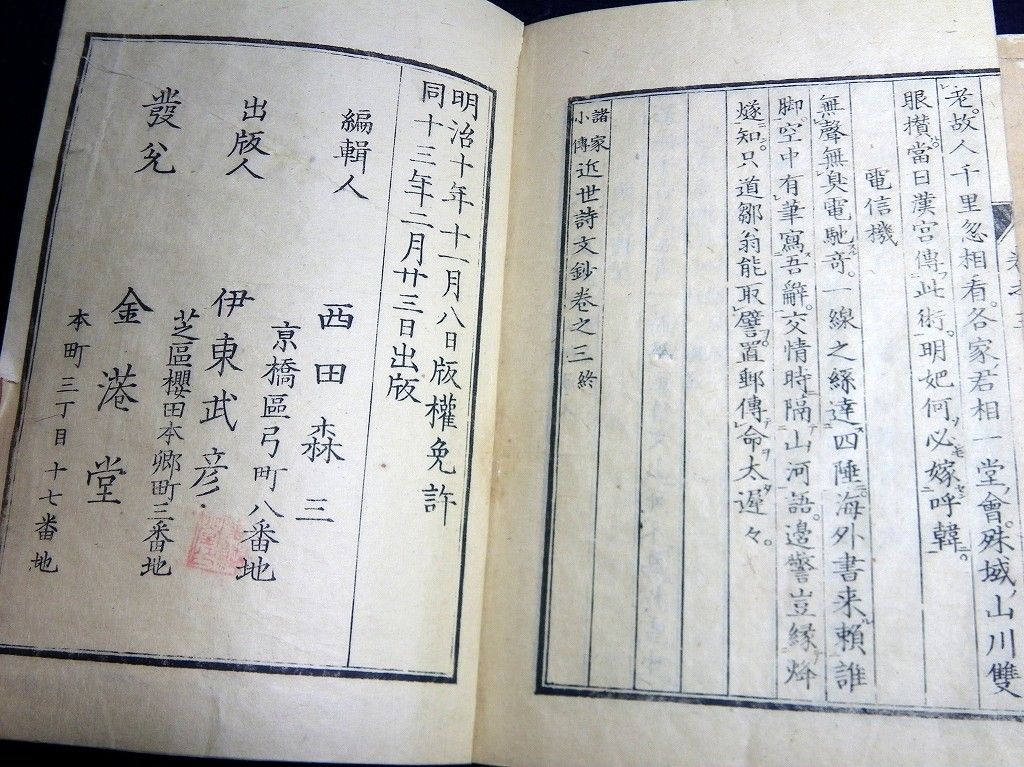 老故人千里忽相看各家君相一堂會殊域山川雙
眼攅當日漢宮傳此術明妃何必嫁呼韓
電信機
無聲無臭電馳奇一線之絲達四陲海外書来頼誰
脚空中有筆寫吾辭交情時隔山河語邊警豈縁烽
燧知只道鄒翁能取譬置郵傳命太遅々
諸家小傳近世詩文鈔卷之三終
明治十年十一月八日版權免許
同十三年二月廿三日出版
編輯人 西田森三
京橋區弓町八番地
出版人 伊東武彦
芝區櫻田本郷町三番地
發兌 金港堂
本町三丁目十七番地